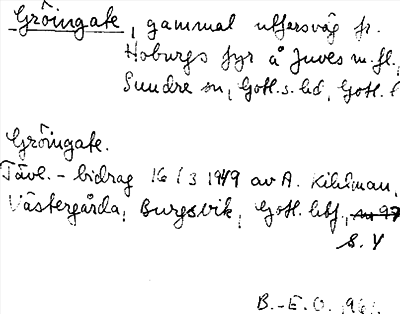 Gröingate, gammal utfersväg fr.
Hoburgs fyr å Juves m.fl.,
Sundre sn, Gotl.s.hd, Gotl.l
Gröingate.
Tävl.-bidrag 16/3 1949 av A. Kihlman,
Västergårda, Burgsvik, Gotl.
S. Y
B.-E.O. 1961.